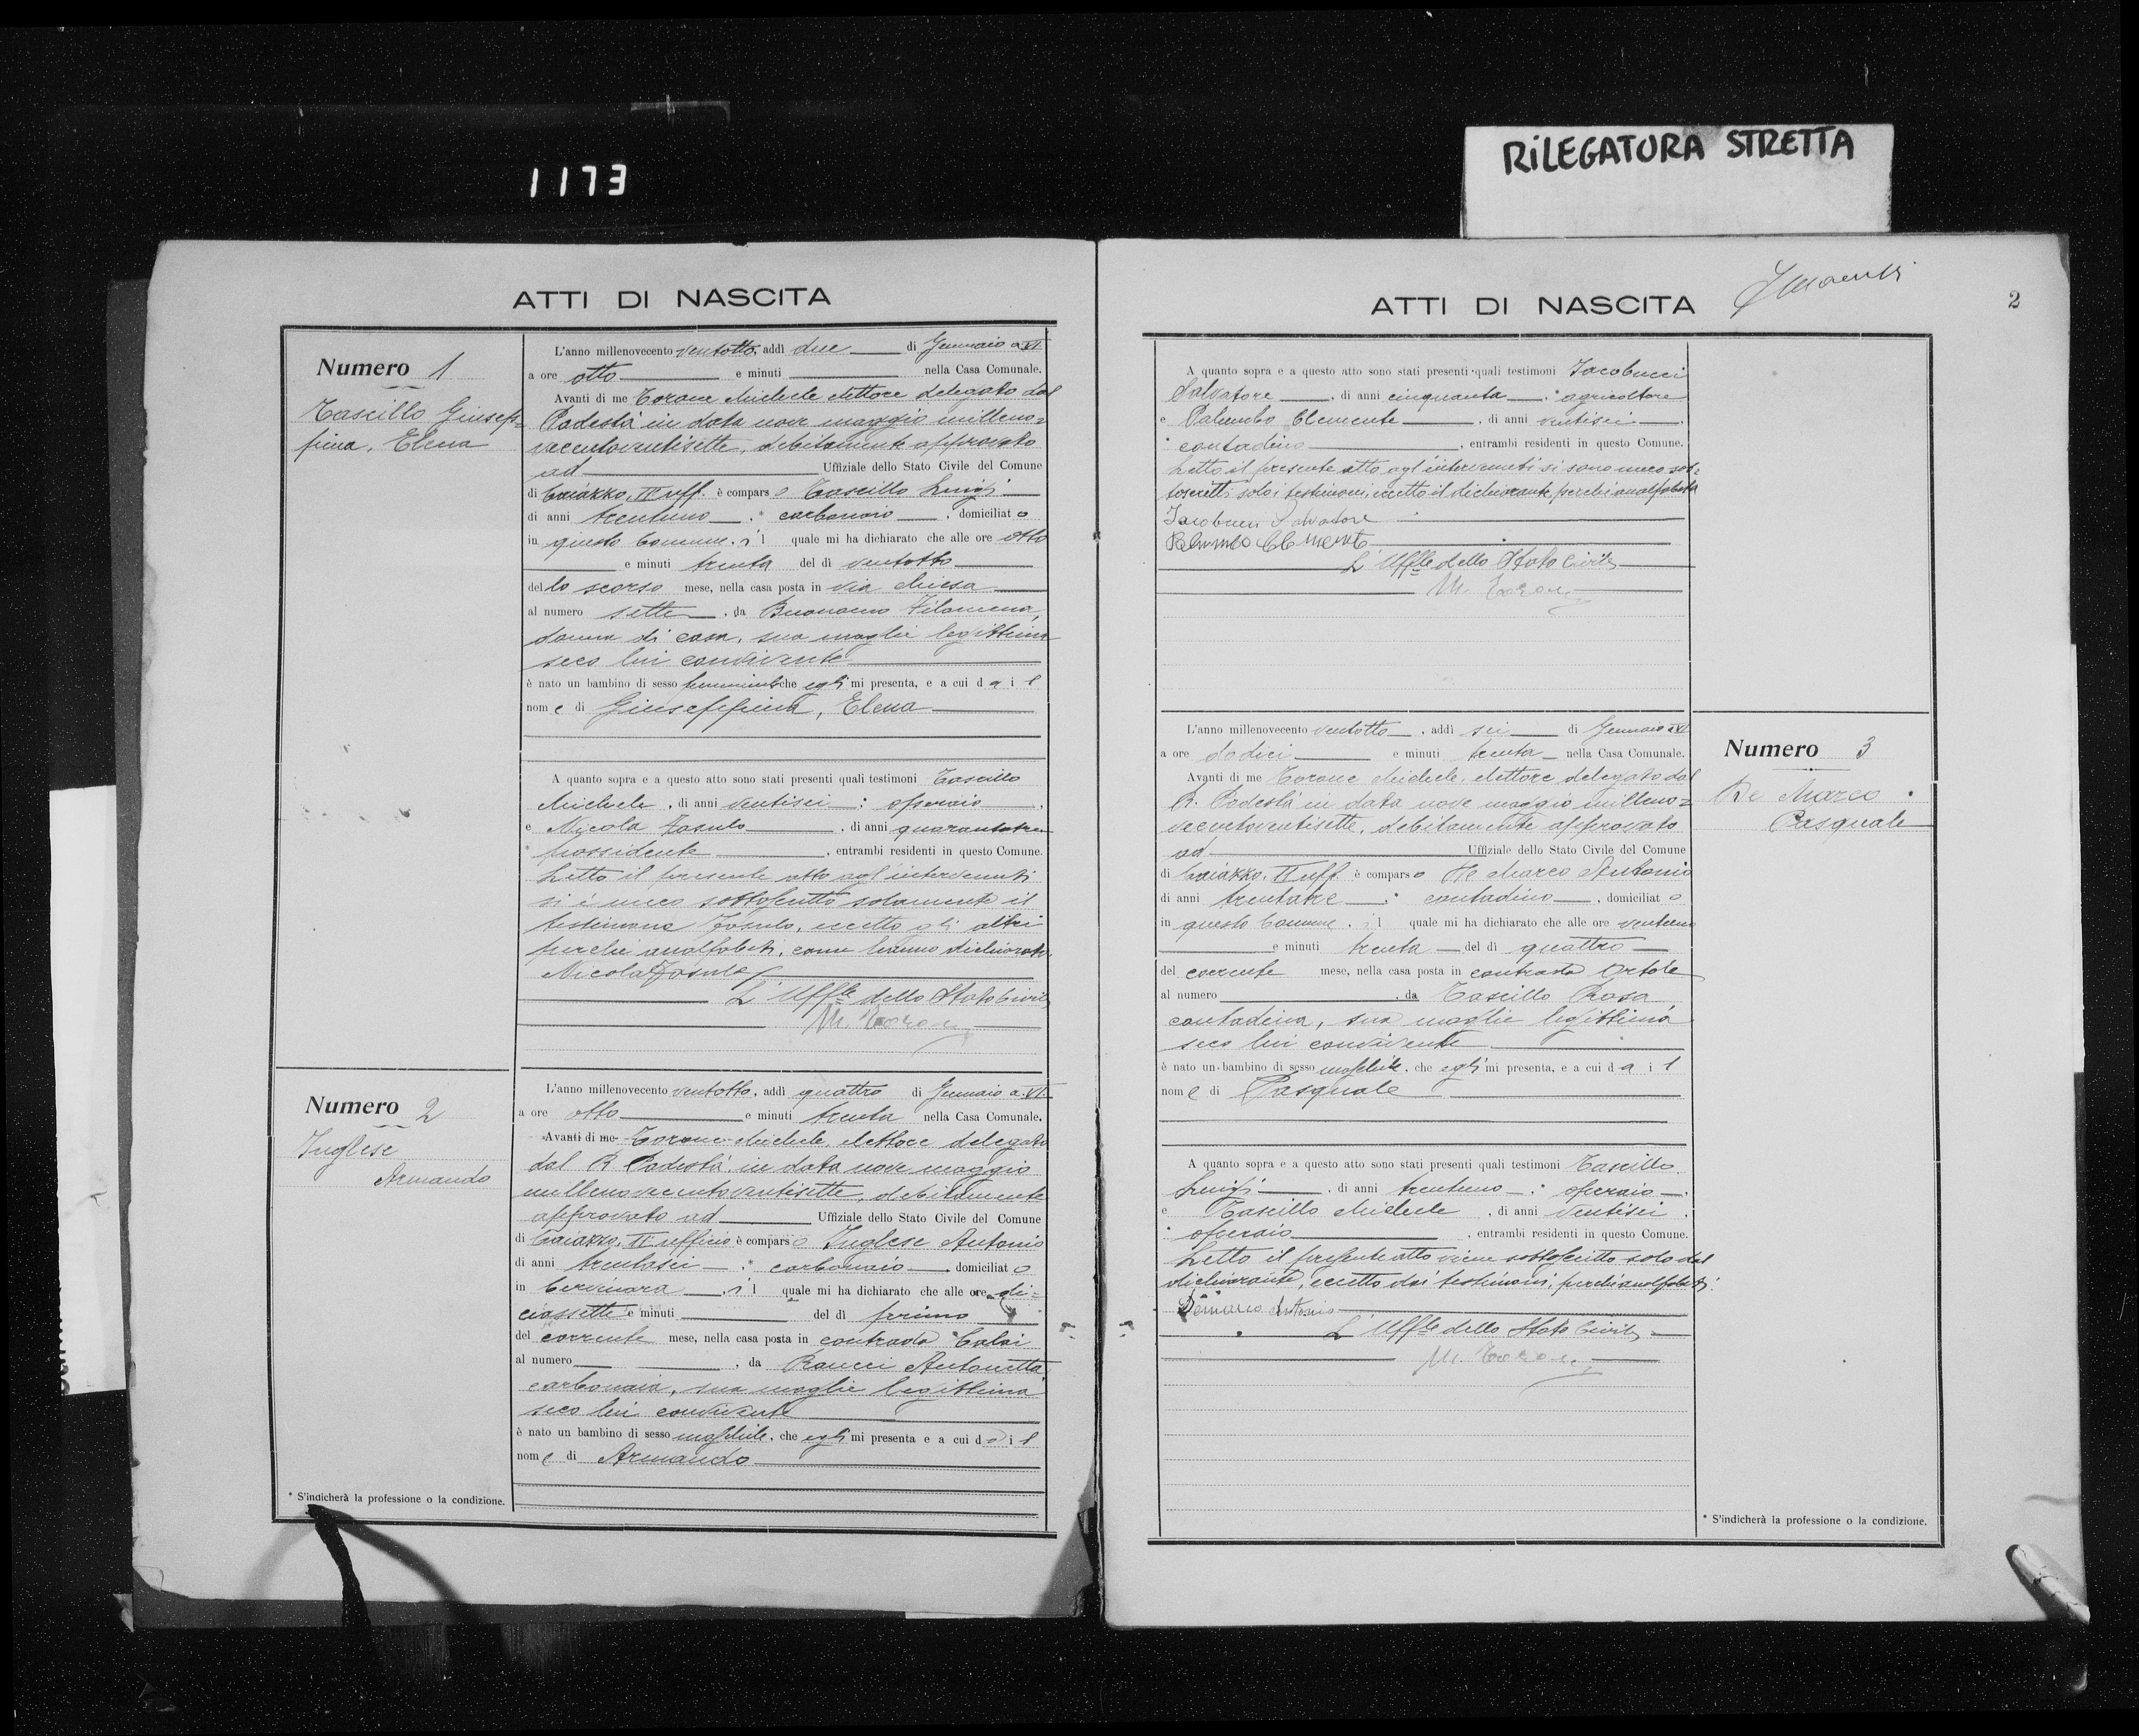 1173
RILEGATURA STRETTA
ATTI DI NASCITA
Numero 1
Tascillo Giusep=
pina, Elena
L'anno millenovecento ventotto, addì due di Gennaio a VI
a ore otto e minuti nella Casa Comunale.
Avanti di me Corone Michele elettore delegato dal
Podestà in data nove maggio milleno=
vecentoventisette, debitamente approvato
ad Uffiziale dello Stato Civile del Comune
di Caiazzo, II uff. è comparso Tascillo Luigi
di anni trentuno, * carbonaio, domiciliato
in questo Comune, il quale mi ha dichiarato che alle ore otto
e minuti trenta del dì ventotto
dello scorso mese, nella casa posta in via Chiesa
al numero sette, da Buonomo Filomena,
donna di casa, sua moglie legittima
seco lui convivente
è nato un bambino di sesso femminile che egli mi presenta, e a cui dà il
nome di Giuseppina, Elena
A quanto sopra e a questo atto sono stati presenti quali testimoni Tascillo
Michele, di anni ventisei, * operaio,
e Nicola Fasulo, di anni quarantatre
* possidente, entrambi residenti in questo Comune.
Letto il presente atto agl'intervenuti
si è meco sottoscritto solamente il
testimone Fasulo, eccetto gli altri
perchè analfabeti, come hanno dichiarato.
Nicola Fasulo
L'Uffle dello Stato Civile
Numero 2
Inglese
Armando
L'anno millenovecento ventotto, addì quattro di Gennaio a. VI.
a ore otto e minuti trenta nella Casa Comunale.
Avanti di me Corone Michele, elettore delegato
dal R. Podestà in data nove maggio
millenovecentoventisette, debitamente
approvato ad Uffiziale dello Stato Civile del Comune
di Caiazzo, II ufficio è comparso Inglese Antonio
di anni trentasei, * carbonaio, domiciliato
in Cervinara, il quale mi ha dichiarato che alle ore di=
ciassette e minuti del dì primo
del corrente mese, nella casa posta in contrada
al numero, da Raucci Antonetta
carbonaia, sua moglie legittima
seco lui convivente
è nato un bambino di sesso maschile, che egli mi presenta e a cui dà il
nome di Armando
* S'indicherà la professione o la condizione.
ATTI DI NASCITA
2
A quanto sopra e a questo atto sono stati presenti quali testimoni Jacobucci
Salvatore, di anni cinquanta, * agricoltore
e Palumbo Clemente, di anni ventisei,
* contadino, entrambi residenti in questo Comune.
Letto il presente atto agl'intervenuti si sono meco sot=
toscritti solo i testimoni, eccetto il dichiarante, perchè analfabeta
Jacobucci Salvatore
Palumbo Clemente
L'Uffle dello Stato Civile
Numero 3
De Marco
Pasquale
L'anno millenovecento ventotto, addì sei di Gennaio a VI
a ore dodici e minuti trenta nella Casa Comunale.
Avanti di me Corone Michele, elettore delegato dal
R. Podestà in data nove maggio milleno=
vecentoventisette, debitamente approvato
ad Uffiziale dello Stato Civile del Comune
di Caiazzo, II uff. è comparso De Marco Antonio
di anni trentatre, * contadino, domiciliato
in questo Comune, il quale mi ha dichiarato che alle ore ventuno
e minuti trenta del dì quattro
del corrente mese, nella casa posta in contrada Ortole
al numero, da Tascillo Rosa
contadina, sua moglie legittima
seco lui convivente
è nato un bambino di sesso maschile, che egli mi presenta, e a cui dà il
nome di Pasquale
A quanto sopra e a questo atto sono stati presenti quali testimoni Tascillo
Luigi, di anni trentuno, * operaio,
e Tascillo Michele, di anni ventisei,
* operaio, entrambi residenti in questo Comune.
Letto il presente atto viene sottoscritto solo dal
dichiarante, eccetto dai testimoni, perchè analfabeti.
Demarco Antonio
L'Uffle dello Stato Civile
* S'indicherà la professione o la condizione.